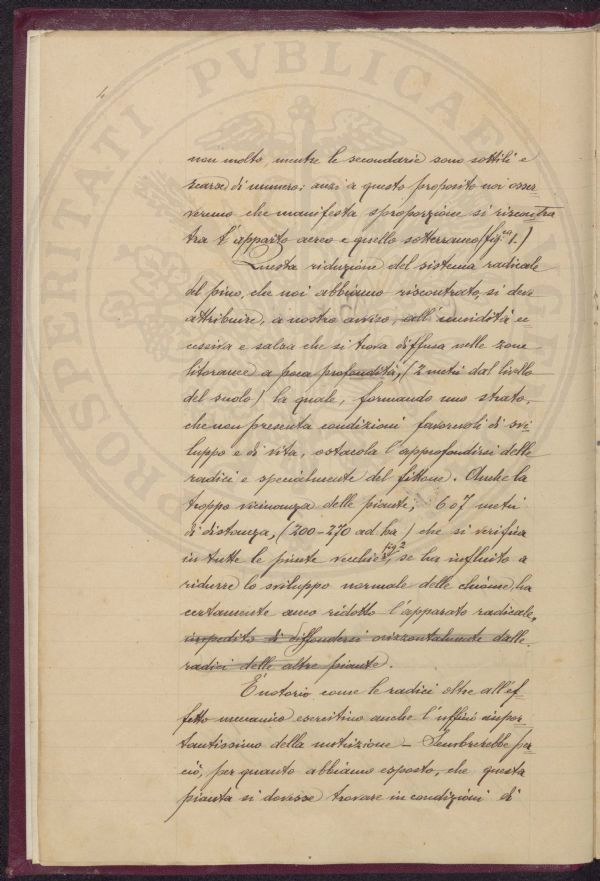 4
non molto, mentre le secondarie sono sottili e
scarse di numero: anzi a questo proposito noi osser
veremo che manifesta sproporzione si riscontra
tra l'apparato aereo e quello sotterraneo (fig.ra 1.)
Questa riduzione del sistema radicale
del pino, che noi abbiamo riscontrato, si deve
attribuire, a nostro avviso, all'umidità ec
cessiva e salsa che si trova diffusa nelle zone
litoranee a poca profondità, (2 metri dal livello
del suolo) la quale, formando uno strato,
che non presenta condizioni favorevoli di svi-
luppo e di vita, ostacola l'approfondirsi delle
radici e specialmente del fittone. Anche la
troppo vicinanza delle piante, 6 o 7 metri
di distanza, (200-270 ad ha) che si verifica
in tutte le pinete vecchie, fig 2 se ha influito a
ridurre lo sviluppo normale delle chiome, ha
certamente anco ridotto l'apparato radicale,
impedito di diffondersi orizzontalmente dalle
radici delle altre piante.
È notorio come le radici oltre all'ef-
fetto meccanico esercitino anche l'ufficio impor-
tantissimo della nutrizione - Sembrerebbe per
ciò, per quanto abbiamo esposto, che questa
pianta si dovesse trovare in condizioni di
PROSPERITATI PVBLICAE